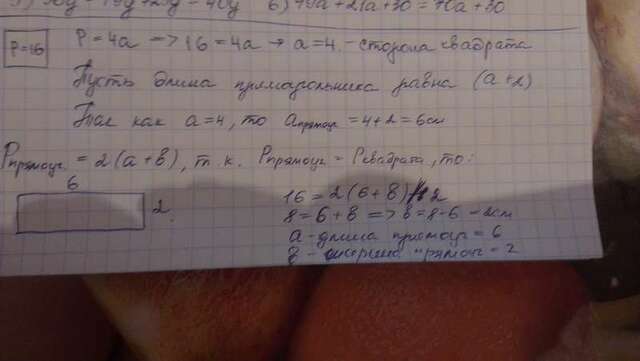 6) 49a + 21a + 30 = 70a + 30
P=16
P = 4a => 16 = 4a → a = 4. - сторона квадрата
Пусть длина прямоугольника равна (a+2)
Так как a=4, то aпрямоуг = 4+2 = 6см
Pпрямоуг. = 2(a+b), т.к. Pпрямоуг = Pквадрата, то:
6
2.
16 = 2(6+b)
8 = 6+b => b = 8-6 = 2см
a - длина прямоуг = 6
b - ширина прямоуг = 2